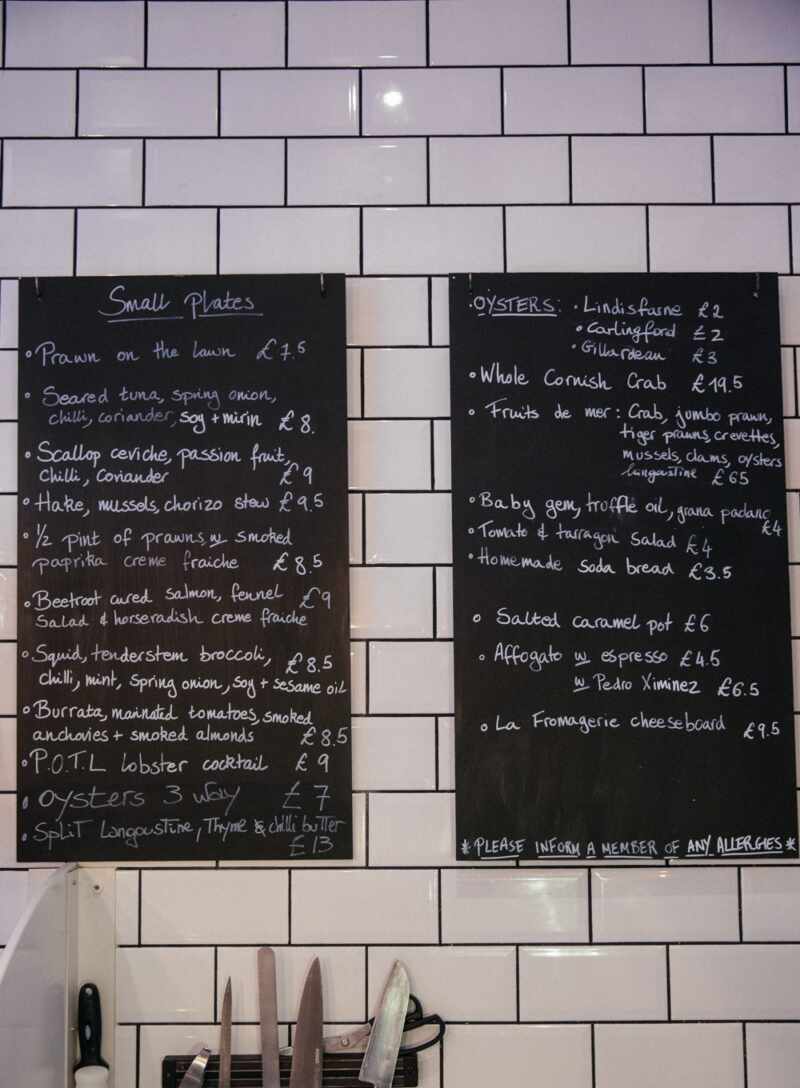 Small Plates
• Prawn on the Lawn £7.5
• Seared tuna, spring onion,
chilli, coriander, soy + mirin £8.
• Scallop ceviche, passion fruit,
chilli, Coriander £9
• Hake, mussels, chorizo stew £9.5
• 1/2 pint of prawns, w smoked
paprika creme fraiche £8.5
• Beetroot cured salmon, fennel £9
Salad & horseradish creme fraiche
• Squid, tenderstem broccoli, £8.5
chilli, mint, spring onion, soy + sesame oil
• Burrata, marinated tomatoes, smoked
anchovies + smoked almonds £8.5
• P.O.T.L lobster cocktail £9
• oysters 3 way £7
• Split Langoustine, Thyme & chilli butter
£13
• OYSTERS: • Lindisfarne £2
• Carlingford £2
• Gillardeau £3
• Whole Cornish Crab £19.5
• Fruits de mer: Crab, jumbo prawn,
tiger prawns, crevettes,
mussels, clams, oysters
langoustine £65
• Baby gem, truffle oil, grana padano
£4
• Tomato & tarragon Salad £4
• Homemade soda bread £3.5
• Salted caramel pot £6
• Affogato w espresso £4.5
w Pedro Ximinez £6.5
• La Fromagerie cheeseboard £9.5
* PLEASE INFORM A MEMBER OF ANY ALLERGIES *